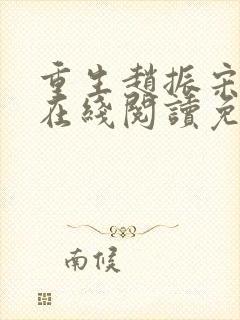 重生趙振宋
在綫閱讀免
南候